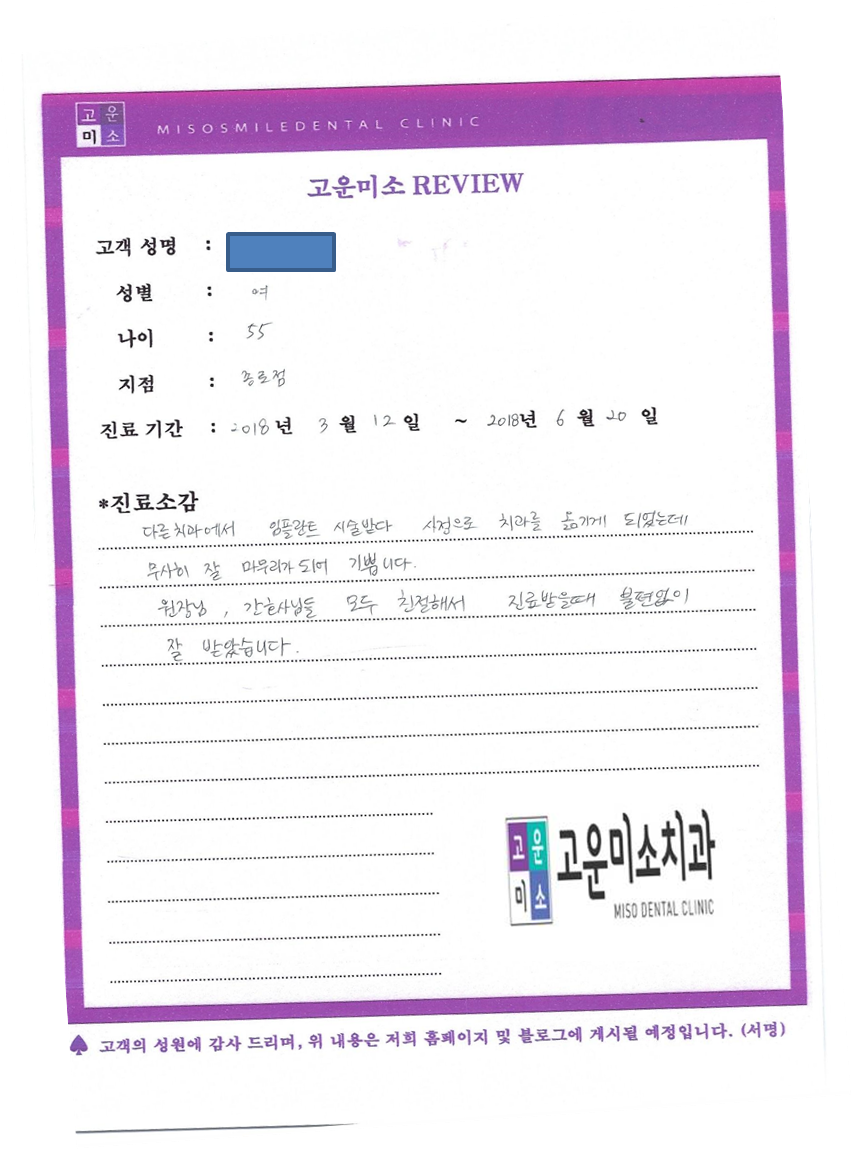 고운
미소
MISOSMILEDENTAL CLINIC
고운미소 REVIEW
고객 성명 :
성별 : 여
나이 : 55
지점 : 종로점
진료 기간 : 2018년 3월 12일 ~ 2018년 6월 20일
*진료소감
다른치과에서 임플란트 시술받다 사정으로 치과를 옮기게 되었는데
무사히 잘 마무리가되어 기쁩니다.
원장님, 간호사님들 모두 친절해서 진료받을때 불편없이
잘 받았습니다.
고운
미소
고운미소치과
MISO DENTAL CLINIC
♠ 고객의 성원에 감사 드리며, 위 내용은 저희 홈페이지 및 블로그에 게시될 예정입니다. (서명)